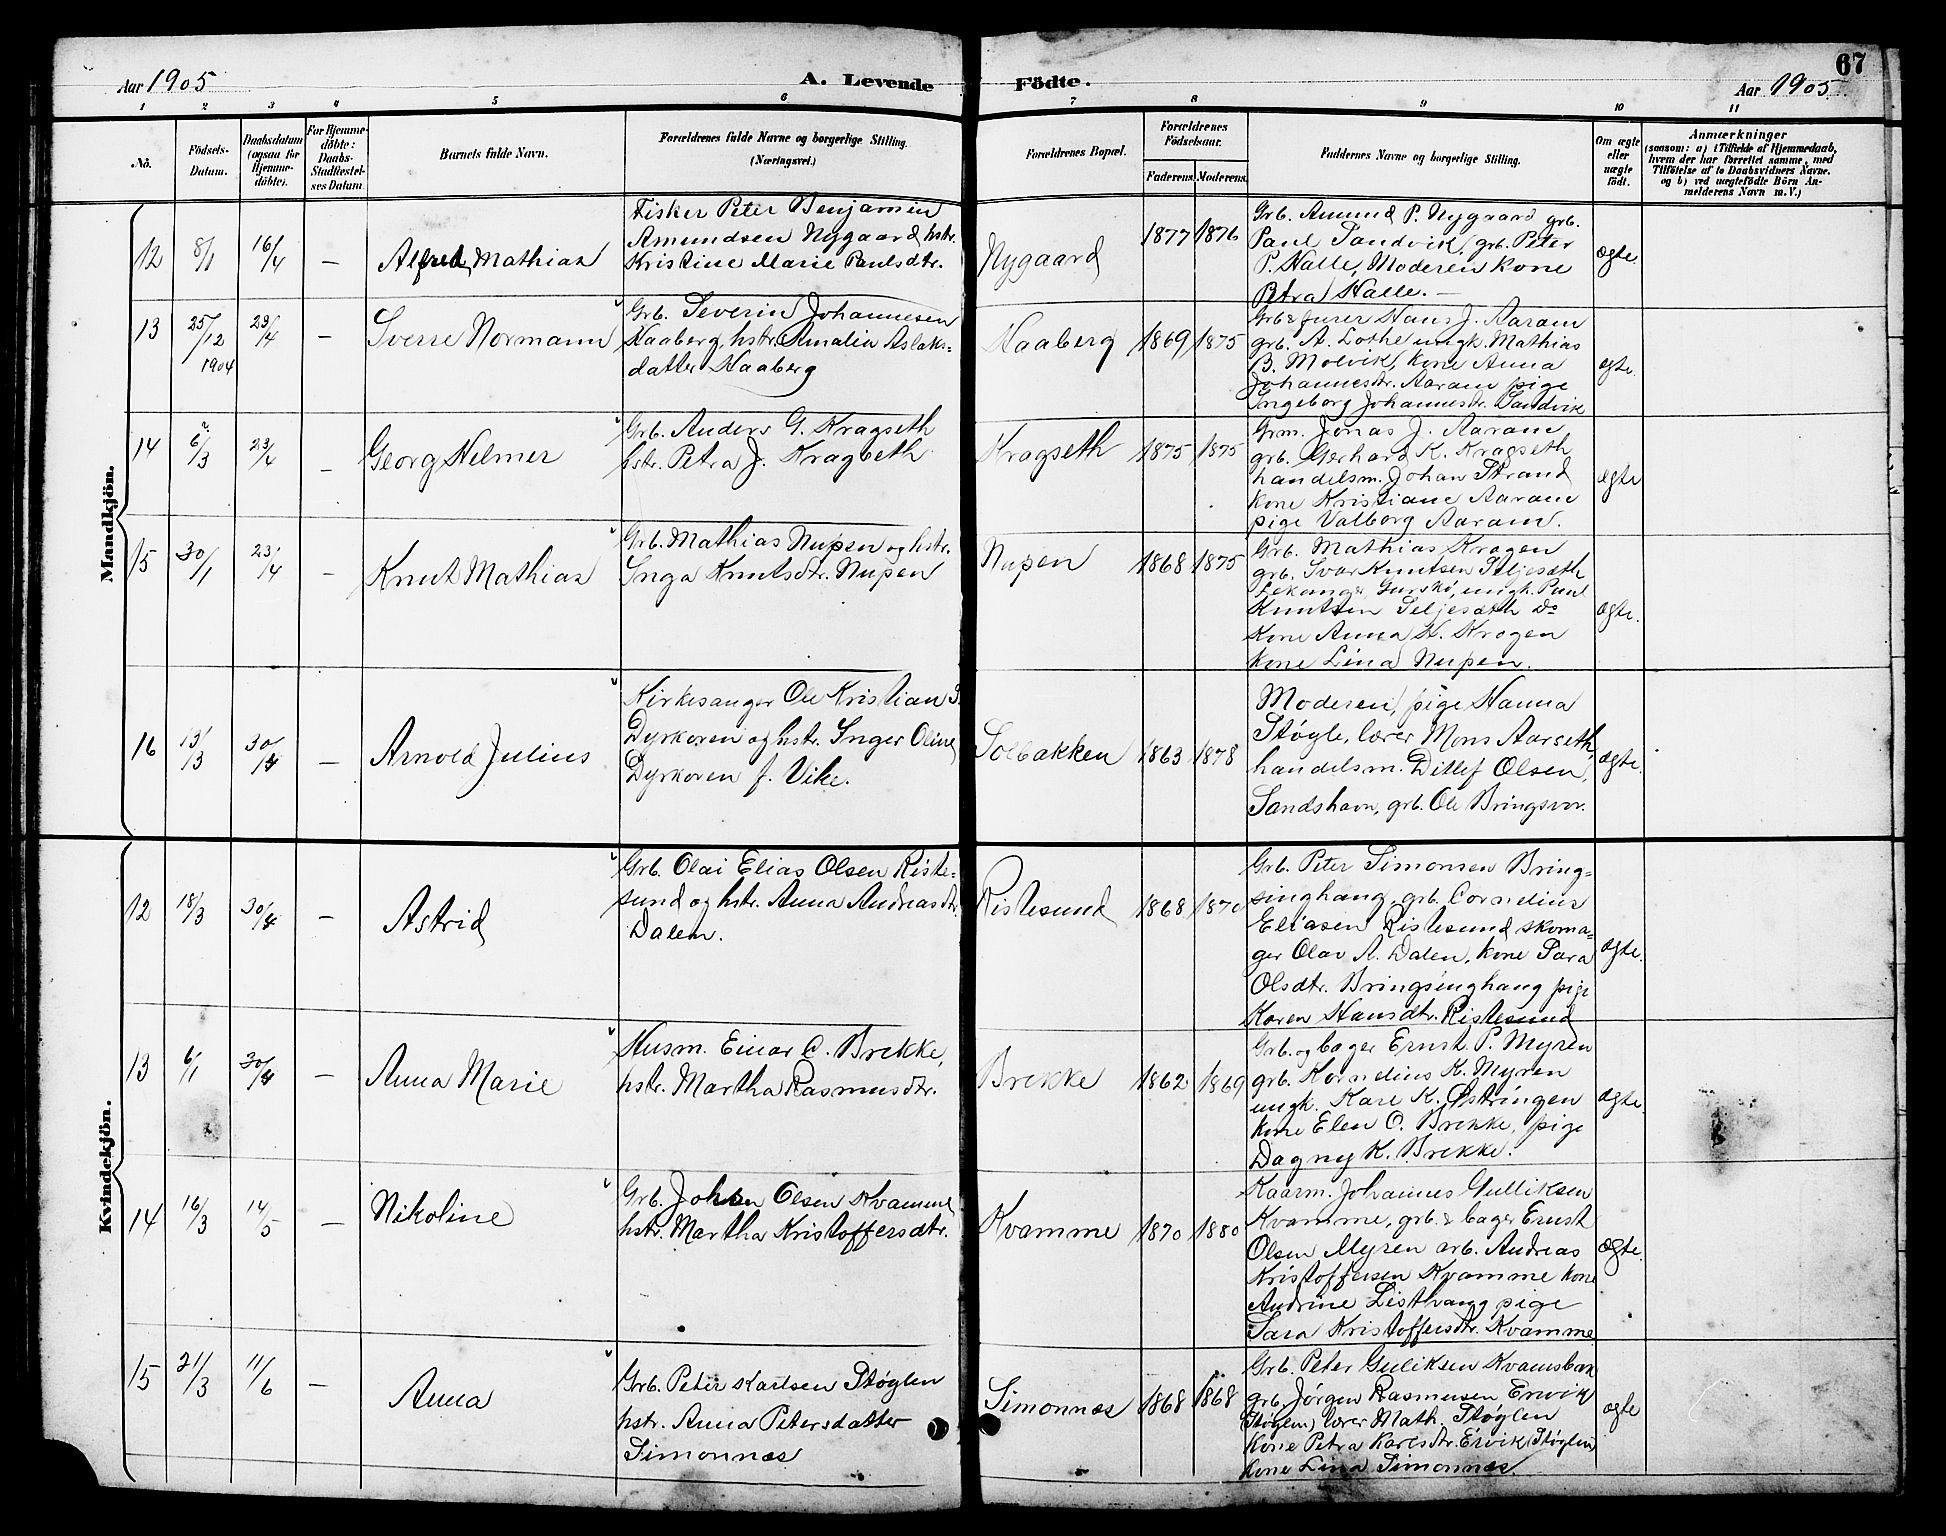 67
Aar 1905
A. Levende Födte.
Aar 1905
1 2 3 4 5 6 7 8 9 10 11
No.
Födsels-Datum.
Daabsdatum (ogsaa for Hjemme-döbte).
For Hjemme-döbte: Daabs-Stadfestel-ses Datum.
Barnets fulde Navn.
Forældrenes fulde Navne og borgerlige Stilling. (Næringsvei.)
Forældrenes Bopæl.
Forældrenes Födselsaar.
Faderens. Moderens.
Faddernes Navne og borgerlige Stilling.
Om ægte eller uægte födt.
Anmærkninger
(saasom: a) i Tilfælde af Hjemmedaab,
hvem der har forrettet samme, med
Tilföielse af to Daabsvidners Navne.
og b) ved uægtefödte Börn An-
melderens Navn m. V.)
Mandkjön.
12 8/1 16/4 — Alfred Mathias
Fisker Peter Benjamin
Amundsen Nygaard, hstr.
Kristine Marie Paulsdtr.
Nygaard 1877 1876
Grb. Amund P. Nygaard grb.
Paul Sandvik, grb. Peter
P. Halle, Moderen kone
Petra Halle. —
ægte.
13 25/12 1904 23/4 — Sverre Normann
Grb. Severin Johannesen
Haaberg, hstr. Amalia Aslaks-
datter Haaberg
Haaberg 1869 1875
Grb. & furer Hans J. Aaram
grb. A. Lothe ungk. Mathias
B. Molvik, kone Anna
Johannesdtr. Aaram pige
Ingeborg Johannesdtr. Sandvik
ægte.
14 6/3 23/4 — Georg Helmer
Grb. Anders G. Kragseth
hstr. Petra J. Kragseth
Kragseth 1875 1875
Grm. Jonas J. Aaram
grb. Gerhard K. Kragseth
handelsm. Johan Strand
kone Kristiane Aaram
pige Valborg Aaram.
ægte
15 30/1 23/4 — Knut Mathias
Grb. Mathias Nupen og hstr.
Inga Knutsdtr. Nupen
Nupen 1868 1875
Grb. Mathias Kragen
grb. Ivar Knutsen Seljesæth
Lekanger Gurskø, ungk. Paul
Knutsen Seljesæth Do
Kone Anna H. Kragen
kone Lina Nupen.
ægte.
16 13/3 30/4 — Arnold Julius
Kirkesanger Ole Kristian S.
Dyrkoren og hstr. Inger Oline
Dyrkoren f. Vike.
Solbakken 1863 1878
Moderen, pige Hanna
Støyle, lærer Mons Aarseth,
handelsm. Ditlef Olsen,
Sandshavn, grb. Ole Bringsvor.
ægte.
Kvindekjön.
12 18/3 30/4 — Astrid
Grb. Olai Elias Olsen Riste-
sund og hstr. Anna Andreasdtr.
Dalen.
Ristesund 1868 1870
Grb. Peter Simonsen Bring-
singhaug, grb. Cornelius
Eliasen Ristesund skoma-
ger Olav A. Dalen, kone Sara
Olsdtr. Bringsinghaug pige
Karen Hansdtr. Ristesund
ægte.
13 6/1 30/4 — Anna Marie
Husm. Einar C. Brekke,
hstr. Martha Rasmusdtr.
Brekke 1862 1869
Grb. og bager Ernst P. Myren
grb. Kornelius K. Myren
ungk. Karl K. Østringen
kone Elen O. Brekke, pige
Dagny K. Brekke.
ægte.
14 16/3 14/5 — Nikoline
Grb. Johan Olsen Kvamme
hstr. Martha Kristoffersdtr.
Kvamme 1870 1880
Kaarm. Johannes Gulliksen
Kvamme, grb. & bager Ernst
Olsen Myren arb. Andreas
Kristoffersen Kvamme kone
Andrine Listhaug pige
Sara Kristoffersdtr. Kvamme
ægte.
15 21/3 11/6 — Anna
Grb. Peter Karlsen Støylen
hstr. Anna Petersdatter
Simonnæs
Simonnæs 1868 1868
Grb. Peter Guliksen Kvamsbak
grb. Jørgen Rasmussen Ervik
(Støylen) lærer Math. Støylen
Kone Petra Karlsdtr. Ervik (Støylen)
Kone Lina Simonnæs.
ægte